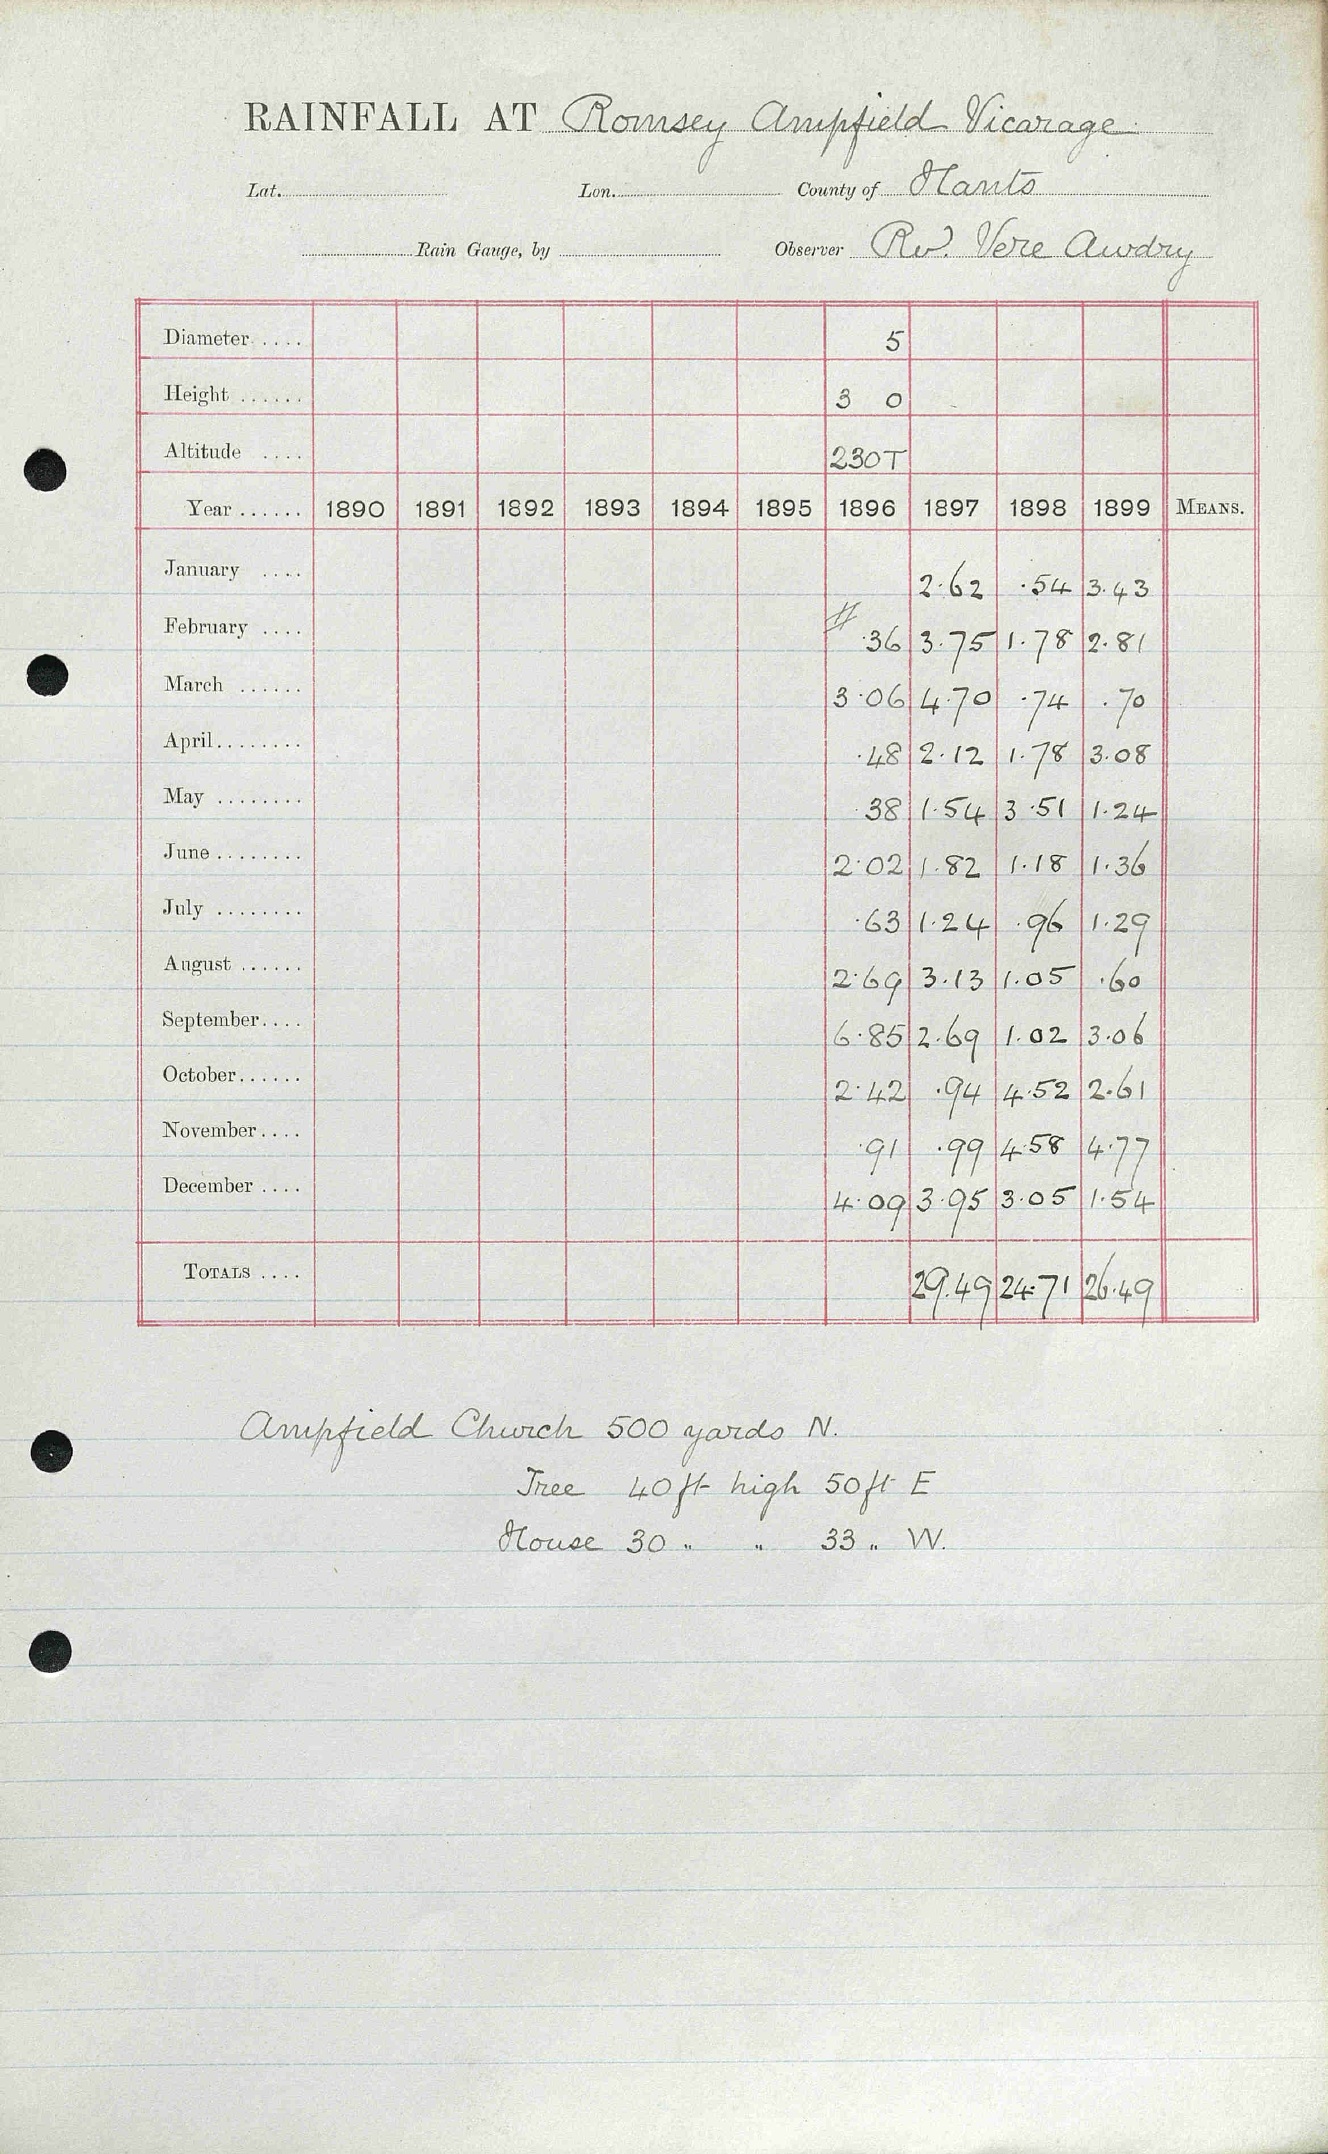 RAINFALL AT Romsey Ampfield Vicarage
Lat. Lon. County of Hants
Rain Gauge, by Observer Rev. Vere Awdry
Diameter .... 5
Height ...... 3 0
Altitude .... 230T
Year ...... 1890 1891 1892 1893 1894 1895 1896 1897 1898 1899 MEANS.
January .... 2.62 .54 3.43
February .... # .36 3.75 1.78 2.81
March ...... 3.06 4.70 .74 .70
April ........ .48 2.12 1.78 3.08
May ........ .38 1.54 3.51 1.24
June ........ 2.02 1.82 1.18 1.36
July ........ .63 1.24 .96 1.29
August ...... 2.69 3.13 1.05 .60
September .... 6.85 2.69 1.02 3.06
October ...... 2.42 .94 4.52 2.61
November .... .91 .99 4.58 4.77
December .... 4.09 3.95 3.05 1.54
TOTALS .... 29.49 24.71 26.49
Ampfield Church 500 yards N.
Tree 40ft high 50ft E
House 30 " " 33 " W.